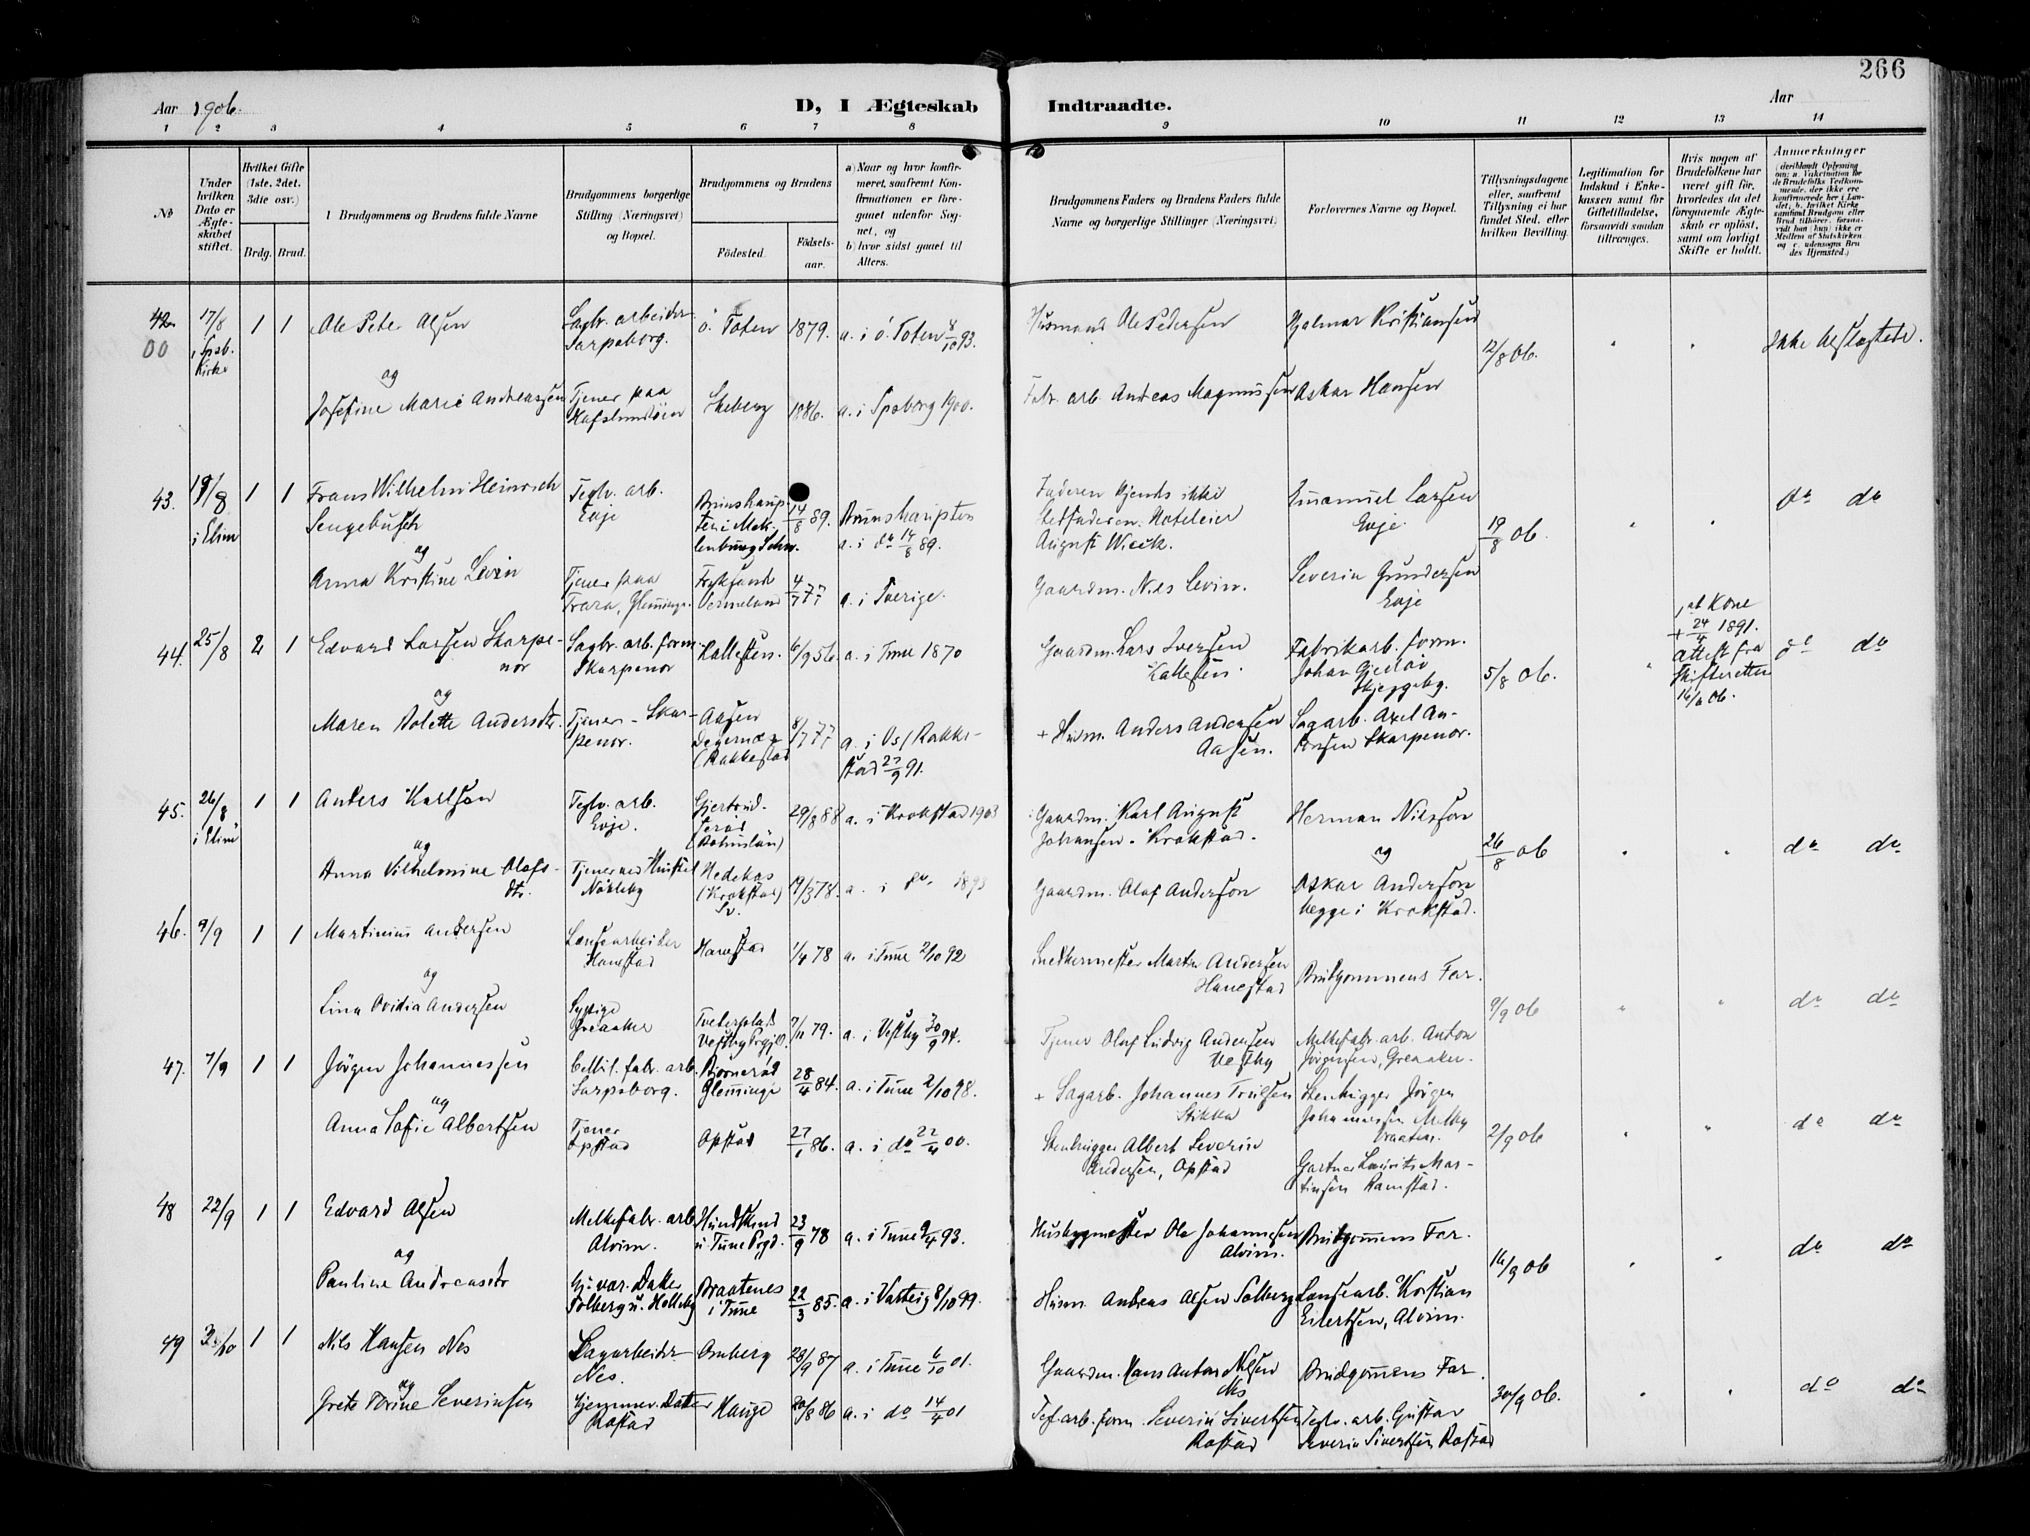 266
Aar 1906.
D, I Ægteskab Indtraadte.
Aar
1 2 3 4 5 6 7 8 9 10 11 12 13 14
No
Under hvilken Dato er Ægteskabet stiftet.
Hvilket Gifte (1ste, 2det, 3die osv.)
Brdg. Brud.
1 Brudgommens og Brudens fulde Navne
Brudgommens borgerlige Stilling (Næringsvei) og Bopæl.
Brudgommens og Brudens
Fødested.
Fødselsaar.
a) Naar og hvor konfirmeret, saafremt Konfirmationen er foregaaet udenfor Sognet, og
b) hvor sidst gaaet til Alters.
Brudgommens Faders og Brudens Faders fulde Navne og borgerlige Stillinger (Næringsvei)
Forlovernes Navne og Bopæl.
Tillysningsdagene eller, saafremt Tillysning ei har fundet Sted, efter hvilken Bevilling.
Legitimation for Indskud i Enkekassen samt for Giftetilladelse, forsaavidt saadan tiltrænges.
Hvis nogen af Brudefolkene har været gift før, hvorledes da det foregaaende Ægteskab er opløst, samt om lovligt Skifte er holdt.
Anmærkninger
42. 17/8 1 1 Ole Peter Olsen Sagbr. arbeider Ö. Toten 1879. a. i Ö. Toten 93. Husmand Ole Pedersen Hjalmar Kristiansen
00 i Spsb. Kirke Sarpsborg. 12/8 06. Ikke beslægtede.
og
Josefine Marie Andreassen Tjener paa Hafslundsöen Skeberg 1886. a. i Spsborg 1900. Fabr. arb. Andreas Magnussen Oskar Hansen
43. 19/8 1 1 Frans Wilhelm Heinrich Teglv. arb. Faderen kjendes ikke Emanuel Larsen do do
i Elim Sengebusch Evje 14/8 89. Brunshaupten Stedfaderen Hoteleier Evje 19/8 06.
a. i do 14/8 89. August Wieck.
og
Anna Kristine Levin Tjener paa Trara, Glemminge. Vermeland 4/7 77 a. i Sverige. Gaardm. Nils Levin. Severin Gundersen Evje
44. 25/8 2 1 Edvard Larsen Skarpenor Sagbr. arb. form. Skarpenor Kallesten. 6/9 56 a. i Tune 1870 Gaardm. Lars Iversen Kallesten. Fabrikarb. form. Johan Skjeggeby. 5/8 06. Kone + 24/4 1891. Attest fra Skifteretten do do
og
Maren Andersdtr. Tjener – Skarpenor. Aasen Degernæs (Rakkestad 8/7 77 a. i Os / Rakkestad 27/9 91. + Husm. Anders Andersen Aasen. Sagarb. Axel Skarpenor.
45. 26/8 1 1 Anders Karlson Teglv. arb. Evje. 29/8 88 a. i Krokstad 1903 Gaardm. Karl August Johansen - Krokstad. Herman Nilsson
i Elim og og 26/8 06 do do
Anna Vilhelmine Olofsdtr. Nökleby Hedekas (Krokstad) Sv. 19/3 78. a. i do. 1893 Gaardm. Olof Anderson Oskar Anderson begge i Krokstad.
46. 9/9 1 1 Martinius Andersen Lænsearbeider Hanestad Hanestad 1/4 78 a. i Tune 2/10 92 Snedkermester Martin Andersen Hanestad Brudgommens Far.
og 9/9 06 do do
Lina Ovidia Andersen Sypige Greaaker 7/11 79. a. i Vestby 30/9 94. Tjener Olaf Ludvig Andersen Vestby Melkefabr. arb. Anton Jörgensen, Greaaker.
47. 7/9 1 1 Jörgen Johannessen Cellul. fabr. arb. Sarpsborg. Björneröd Glemminge 28/4 84. a. i Tune 2/10 98. + Sagarb. Johannes Trulsen Stikka Stenhugger Jörgen Johannessen
og 2/9 06 do do
Anna Sofie Albertsen Tjener Opstad Opstad 27/1 86. a. i do 22/4 00. Stenhugger Albert Severin Andersen, Opstad Gartner Lauritz Martinsen Ramstad.
48 22/9 1 1 Edvard Olsen Melkefabr. arb. Alvim. Hundskind u. Tune Prgd. 23/9 78 a. i Tune 9/4 93. Husbygmester Ole Johannesen Alvim. Brudgommens Far.
og 16/9 06 do do
Pauline Andreasdtr Hj. vær. Datter Solberg u. Holleby Braatenes i Tune 22/3 85. a. i Varteig 8/10 99. Husm. Andreas Olsen Solberg Lænsearb. Kristian Eilertsen, Alvim.
49 1 1 Nils Hansen Nes Sagarbeider Nes. Omberg 28/9 87 a. i Tune 6/10 01. Gaardm. Hans Anton Nilsen Nes Brudgommens Far.
og 30/9 06. do do
Grete Severinsen Hjemmev. Datter Rostad Hauge 20/8 86 a. i do 14/4 01 Tegl. arb. form. Severin Sivertsen Rostad Teglv. arb. Gustav Severin Sivertsen Rostad